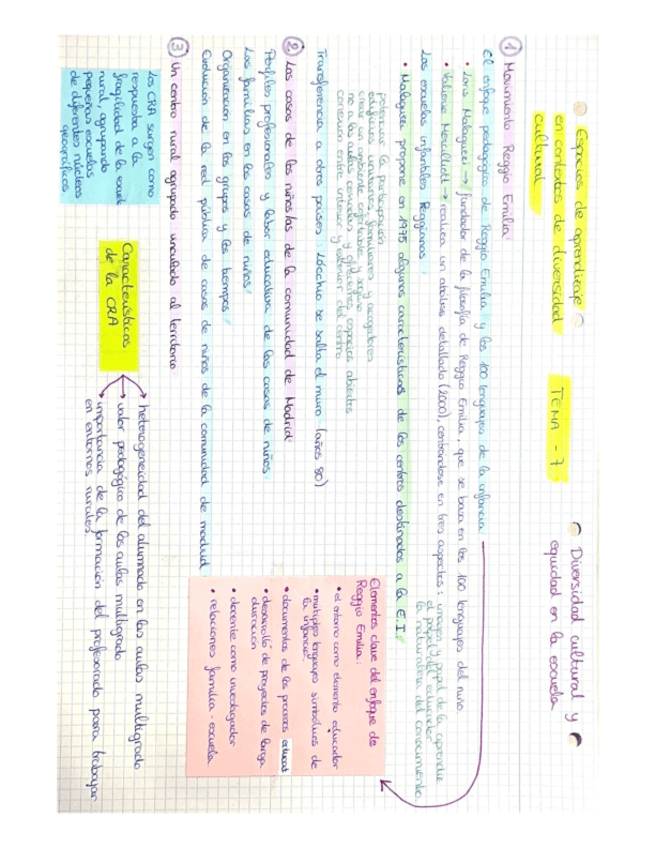 Espacios de aprendizaje
en contextos de diversidad
cultural
TEMA - 7
Diversidad cultural y
equidad en la escuela
1 Movimiento Reggio Emilia
El enfoque pedagógico de Reggio Emilia y los 100 lenguajes de la infancia
• Loris Malaguzzi → fundador de la filosofía de Reggio Emilia, que se basa en los 100 lenguajes del niño.
→ realiza un análisis detallado (2000), centrándose en tres aspectos: imagen y papel de la aprendiz
el papel del educador
la naturaleza del conocimiento
Las escuelas infantiles Reggianas:
• Malaguzzi propone en 1975 algunas características de los centros destinados a la E.I
potenciar la participación
edificios unitarios, familiares y acogedores
crear un ambiente confortable y seguro
no a las aulas cerradas y ofrecernos espacios abiertos
conexión entre interior y exterior del centro
Transferencia a otros países: L'occhio se salta el muro (años 80)
Elementos clave del enfoque de
Reggio Emilia:
• el entorno como elemento educador
• múltiples lenguajes simbólicos de
la infancia
• documentos de los procesos educat
• desarrollo de proyectos de larga
duración
• docente como investigador
• relaciones familia - escuela
2 Las casas de los niños/as de la comunidad de Madrid
Perfiles profesionales y labor educativa de las casas de niños
Las familias en las casas de niños
Organización en los grupos y los tiempos
Evolución de la red pública de casas de niños de la comunidad de madrid
3 Un centro rural agrupado vinculado al territorio
Los CRA surgen como
respuesta a la
fragilidad de la escuel
rural, agrupando
pequeñas escuelas
de diferentes núcleos
geográficos
Características
de la CRA
heterogeneidad del alumnado en las aulas multigrado
valor pedagógico de las aulas multigrado
importancia de la formación del profesorado para trabajar
en entornos rurales